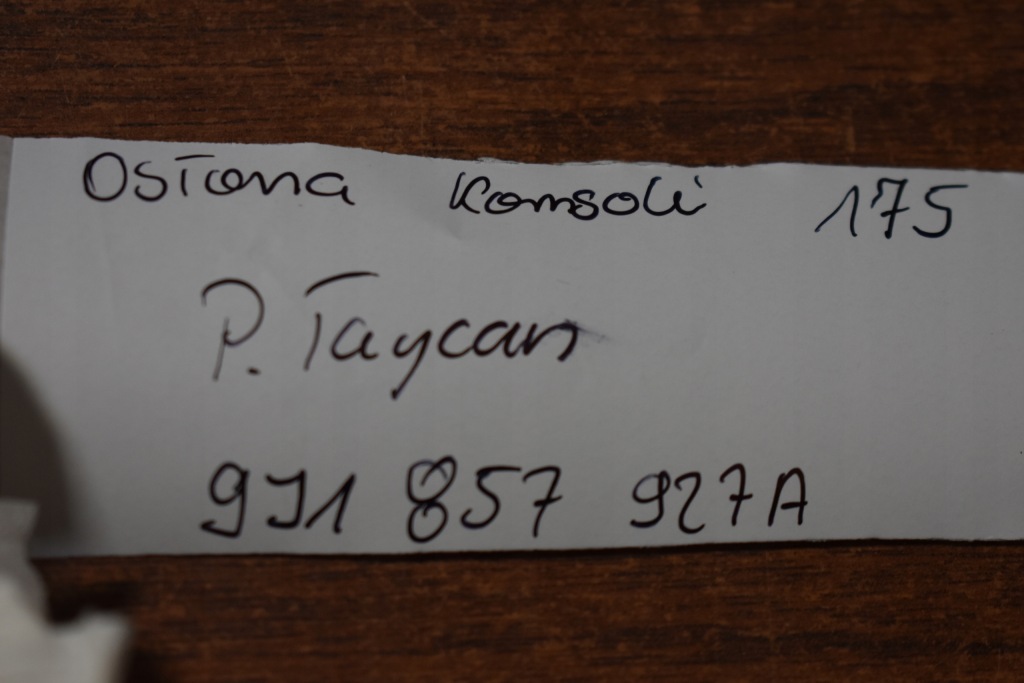 Osłona Konsoli 175
P. Taycan
9J1 857 927A